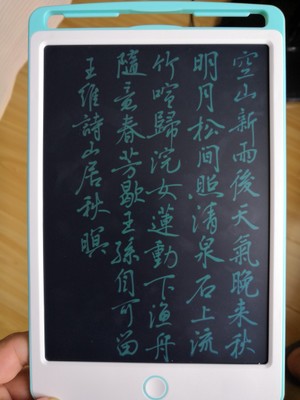 空山新雨後天氣晚来秋
明月松间照清泉石上流
竹喧歸浣女蓮動下漁舟
隨意春芳歇王孫自可留
王維詩山居秋暝